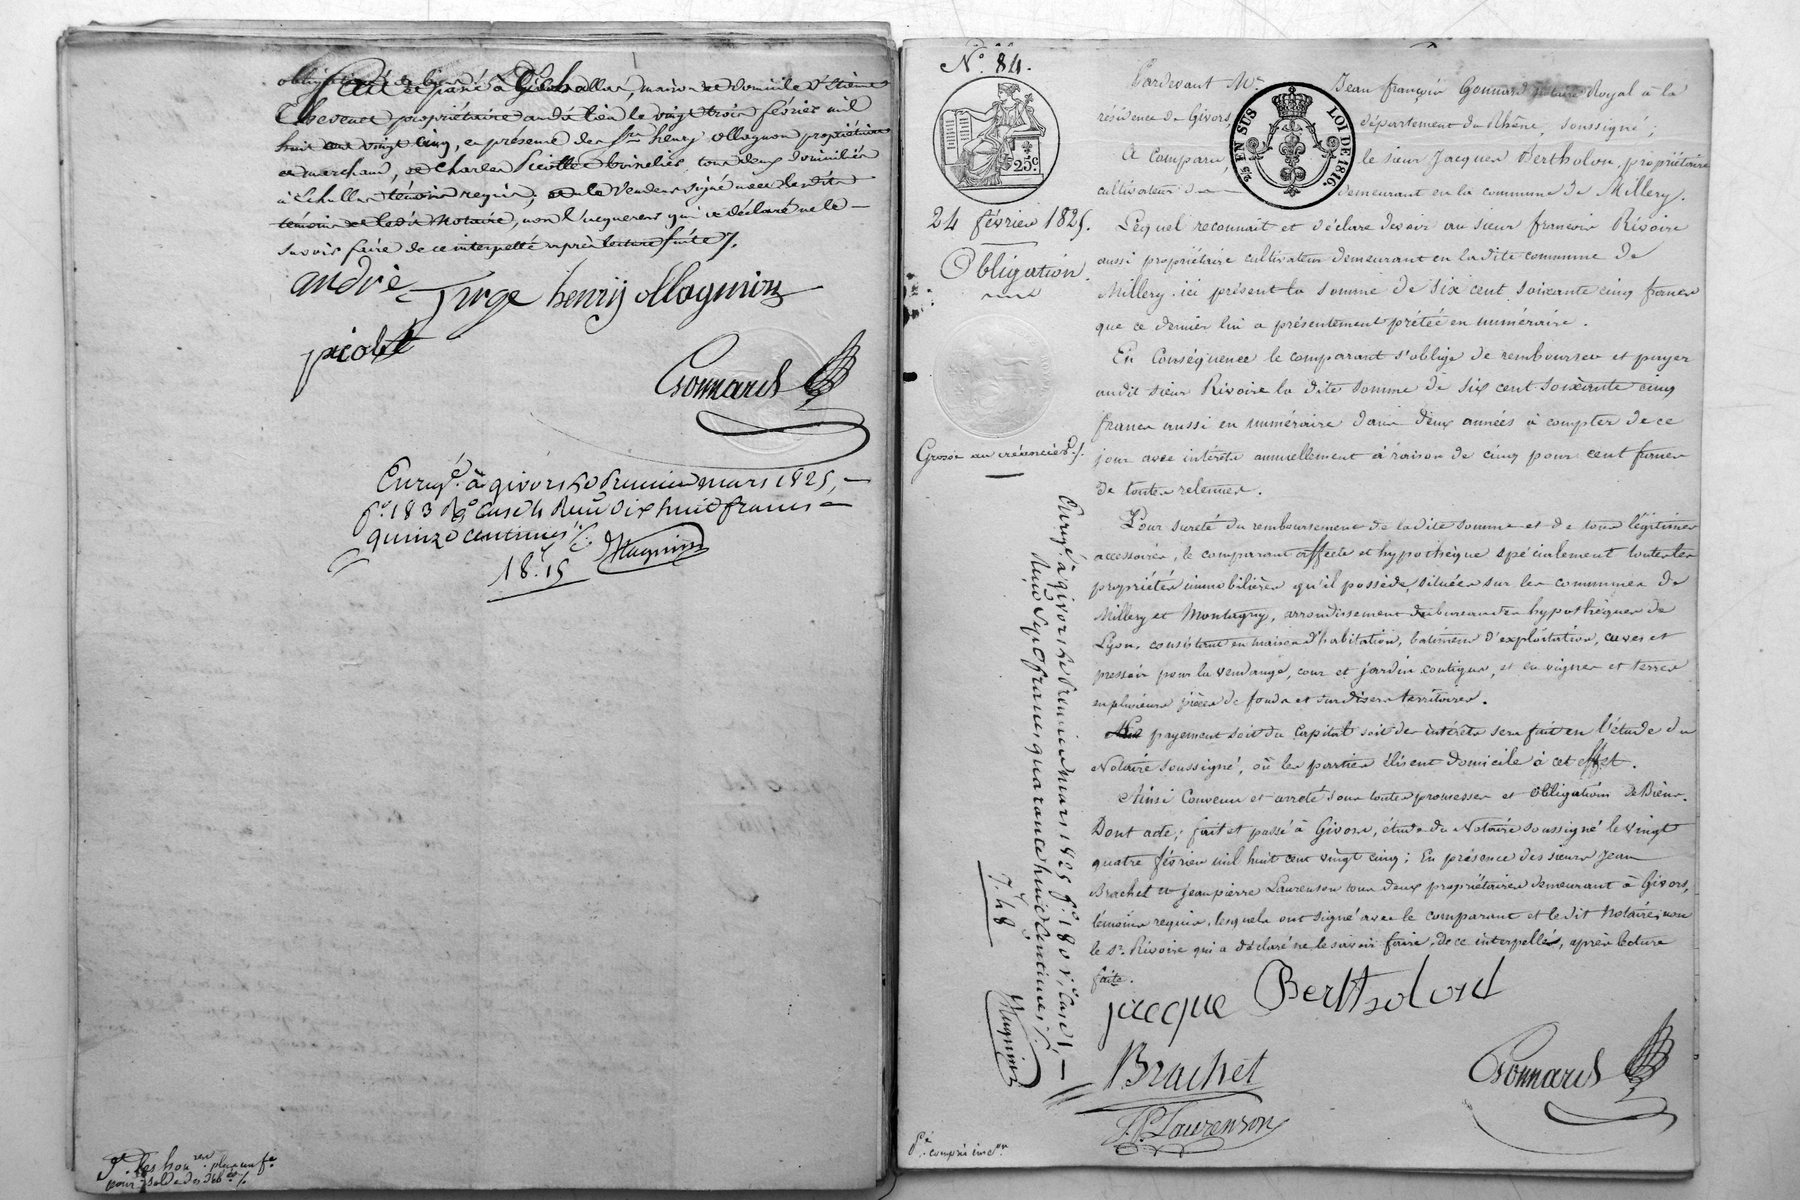 fait et passé à Échallas, maison et domicile d'Étienne
Chevenet propriétaire audit lieu le vingt trois février mil
huit cent vingt cinq, en présence des Srs henry ollagnon propriétaire
et marchand, et Charles Picollet tous deux domiciliés
à Échallas témoins requis; et le vendeur signé avec lesdits
témoins et ledit Notaire, non l'acquéreur qui a déclaré ne le
savoir faire de ce interpellé après lecture faite ./.
andré Furge henry ollagnion
picolet
Gonnard
Enregé. à givors le Premier mars 1825,
fo. 183 Ro Case 4 Reçu dix huit francs
quinze centimes
18.f 15
Pr. les honres. plus un fe.
pour solde des deb
No. 84.
25c.
24 février 1825.
Obligation
Grosse au créancier ./.
25 EN SUS
LOI DE 1816.
Pardevant Me. Jean françois Gonnard Notaire Royal à la
résidence de Givors, département du Rhône, soussigné;
A Comparu, le sieur Jacques Bertholon, propriétaire
cultivateur demeurant en la commune de Millery.
Lequel reconnait et déclare devoir au sieur françois Rivoire
aussi propriétaire cultivateur demeurant en la dite commune de
Millery ici présent la somme de six cent soixante cinq francs
que ce dernier lui a présentement prêtée en numéraire.
En Conséquence le comparant s'oblige de rembourser et payer
audit sieur Rivoire la dite somme de six cent soixante cinq
francs aussi en numéraire dans deux années à compter de ce
jour avec intérêts annuellement à raison de cinq pour cent francs
de toutes retenues.
Pour sureté du remboursement de la dite somme et de tous légitimes
accessoires, le comparant affecte et hypothèque spécialement toutes les
propriétés immobilières qu'il possède, situées sur les communes de
Millery et Montagny, arrondissement du bureau des hypothèques de
Lyon, consistant en maison d'habitation, batimens d'exploitation, cuves et
pressoir pour la vendange, cour et jardin contigus, et en vignes et terres
en plusieurs pièces de fonds et sur divers territoires.
payement soit du Capital soit des intérêts sera fait en l'étude du
Notaire soussigné, où les parties élisent domicile à cet effet.
Ainsi Convenu et arrêté sous toutes promesses et obligations de Biens.
Dont acte; fait et passé à Givors, étude du Notaire soussigné le vingt
quatre février mil huit cent vingt cinq; En présence des sieurs Jean
Brachet et jean pierre Laurenson tous deux propriétaires demeurant à Givors,
témoins requis, lesquels ont signé avec le comparant et ledit Notaire, non
le Sr. Rivoire qui a déclaré ne le savoir faire, de ce interpellé, après lecture
faite.
jacque Bertholond
Brachet
J. P. Laurenson
Gonnard
Enregé. à givors le Premier mars 1825 fo. 180 Vo. Case 1
Reçu Sept francs quarante huit Centimes
7.f 48